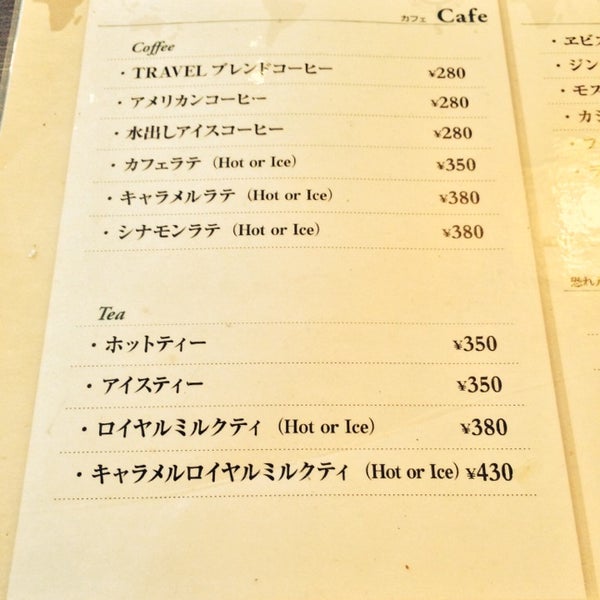 カフェ Cafe
Coffee
・TRAVEL ブレンドコーヒー ¥280
・アメリカンコーヒー ¥280
・水出しアイスコーヒー ¥280
・カフェラテ (Hot or Ice) ¥350
・キャラメルラテ (Hot or Ice) ¥380
・シナモンラテ (Hot or Ice) ¥380
Tea
・ホットティー ¥350
・アイスティー ¥350
・ロイヤルミルクティ (Hot or Ice) ¥380
・キャラメルロイヤルミルクティ (Hot or Ice) ¥430
・ヱビス
・ジン
・モス
・カシ
恐れ入